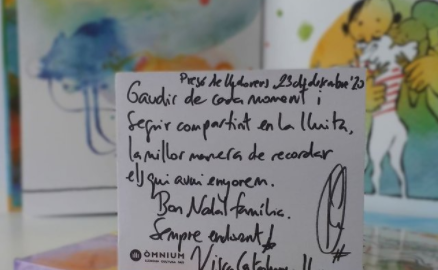 Presó de Lledoners, 23 de desembre '20
Gaudir de cada moment i
seguir compartint en la lluita,
la millor manera de recordar
els qui avui enyorem.
Bon Nadal família.
Sempre endavant!
ÒMNIUM
Visca Catalunya!!